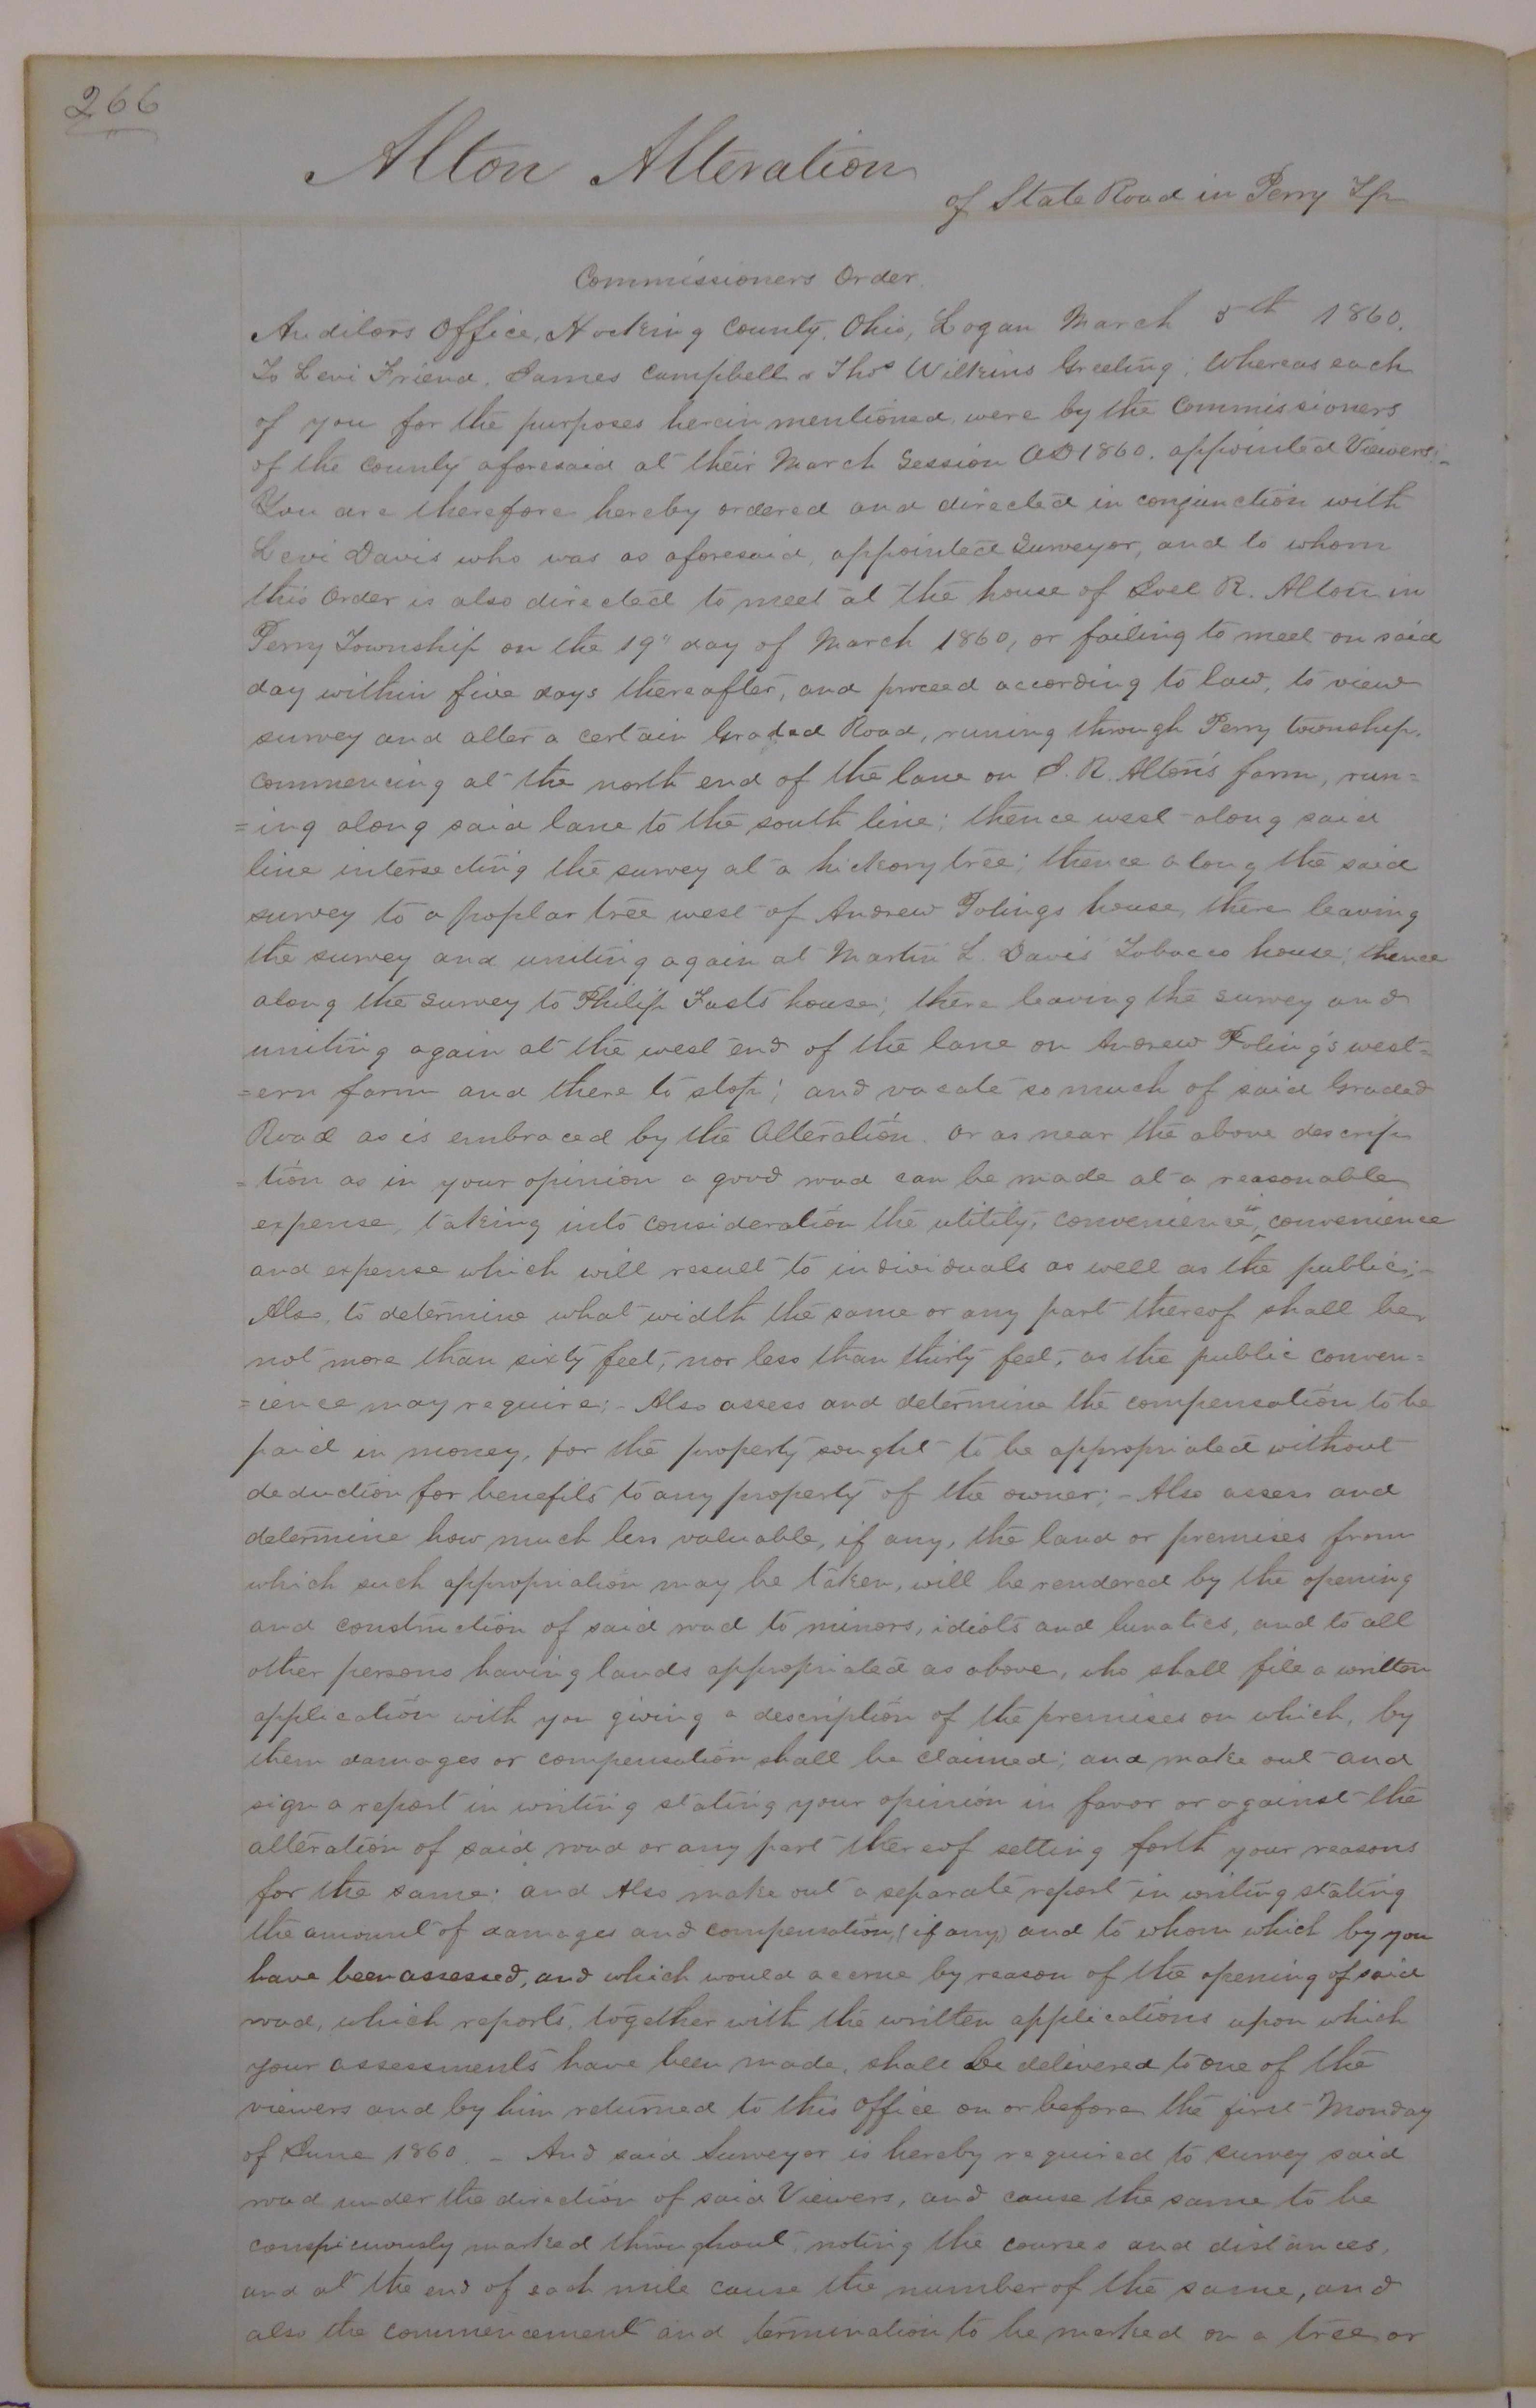 266
Alton Alteration
of State Road in Perry Tp
Commissioners Order.
Auditors Office, Hocking County, Ohio, Logan March 5th 1860.
To Levi Friend, James Campbell & Thos Wilkins Greeting; Whereas each
of you for the purposes herein mentioned, were by the Commissioners
of the County aforesaid at their March Session AD 1860. appointed Viewers;-
You are therefore hereby ordered and directed in conjunction with
Levi Davis who was as aforesaid, appointed Surveyor, and to whom
this Order is also directed to meet at the house of Joel R. Alton in
Perry Township on the 19" day of March 1860, or failing to meet on said
day within five days thereafter, and proceed according to law, to view
survey and alter a certain Graded Road, runing through Perry township.
Commencing at the north end of the lane on J. R. Alton's farm, run=
=ing along said lane to the south line; thence west along said
line intersecting the survey at a hickory tree; thence along the said
survey to a poplar tree west of Andrew Polings house, there leaving
the survey and uniting again at Martin L. Davis' Tobacco house; thence
along the survey to Philip Fasts house; there leaving the survey and
uniting again at the west end of the lane on Andrew Poling's west=
=ern farm and there to stop; and vacate so much of said Graded
Road as is embraced by the Alteration. Or as near the above descrip
=tion as in your opinion a good road can be made at a reasonable
expense, taking into consideration the utility, convenience, ^in convenience
and expense which will result to individuals as well as the public;-
Also, to determine what width the same or any part thereof shall be,
not more than sixty feet, nor less than thirty feet, as the public conven=
=ience may require;- Also assess and determine the compensation to be
paid in money, for the property sought to be appropriated without
deduction for benefits to any property of the owner;- Also assess and
determine how much less valuable, if any, the land or premises from
which such appropriation may be taken, will be rendered by the opening
and construction of said road to minors, idiots and lunatics, and to all
other persons having lands appropriated as above, who shall file a written
application with you giving a description of the premises on which, by
them damages or compensation shall be claimed; and make out and
sign a report in writing stating your opinion in favor or against the
alteration of said road or any part thereof setting forth your reasons
for the same; and Also make out a separate report in writing stating
the amount of damages and compensation, (if any) and to whom which by you
have been assessed, and which would accrue by reason of the opening of said
road, which reports, together with the written applications upon which
your assessments have been made, shall be delivered to one of the
viewers and by him returned to this office on or before the first Monday
of June 1860. - And said Surveyor is hereby required to survey said
road under the direction of said Viewers, and cause the same to be
conspicuously marked throughout, noting the courses and distances,
and at the end of each mile cause the number of the same, and
also the commencement and termination to be marked on a tree or